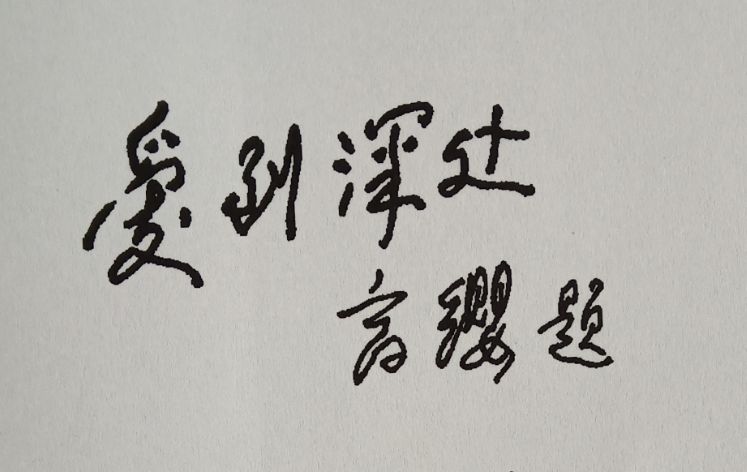 愛到深处
高缨题